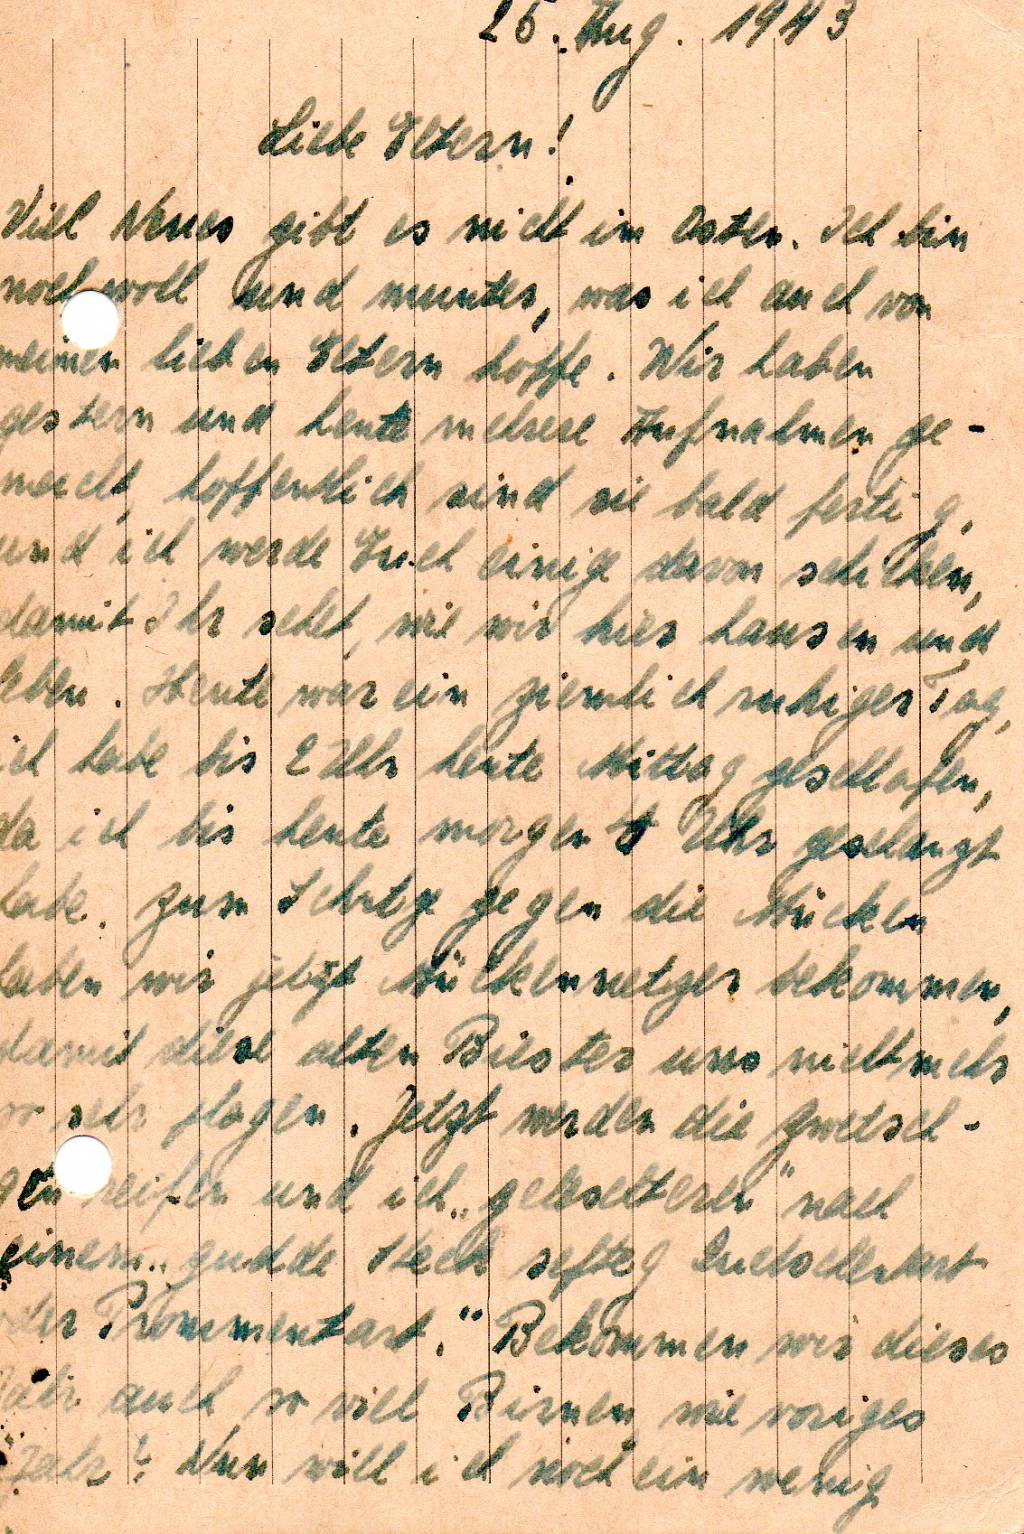 25. Aug. 1943
Liebe Eltern!
Viel Neues gibt es nicht im Osten. Ich bin
noch wohl und munter, was ich auch von
meinen lieben Eltern hoffe. Wir haben
gestern und heute mehrere Aufnahmen ge-
macht, hoffentlich sind sie bald fertig,
und ich werde Euch einige davon schicken,
damit Ihr sehet, wie wir hier hausen und
leben. Heute war ein ziemlich ruhiger Tag,
ich habe bis 2 Uhr heute Mittag geschlafen,
da ich bis heute morgen Uhr geschanzt
habe. Zum Schutze gegen die Mücken
haben wir jetzt Mückennetzer bekommen,
damit diese alten Biester uns nicht mehr
so sehr plagen. Jetzt werden die Zwetsch-
gen reifen und ich „ " nach
einem „gudde Steck Quetschentart
oder Prommentart." Bekommen wir dieses
Jahr auch so viel Birnen wie voriges
Jahr? Nun will ich noch ein wenig